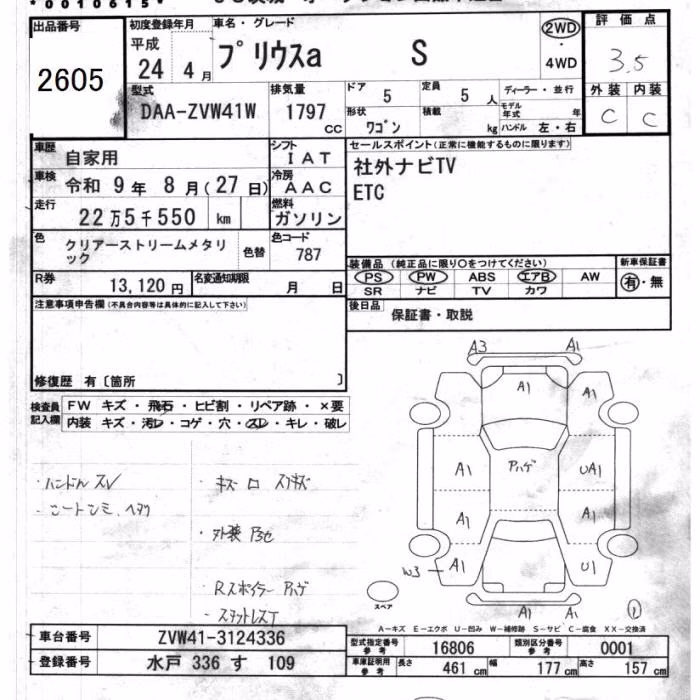 *0010615*
出品番号
2605
初度登録年月
平成
24 4月
車名・グレード
プリウスa S
2WD
・
4WD
評価点
3.5
外装 内装
C C
型式
DAA-ZVW41W
排気量
1797
CC
ドア
5
定員
5 人
形状
ワゴン
積載
kg
ディーラー・並行
モデル年式 年
ハンドル 左・右
車歴
自家用
シフト
IAT
車検
令和 9年 8月(27日)
冷房
AAC
走行
22万5千550 km
燃料
ガソリン
色
クリアーストリームメタリック
色替
色コード
787
R券
13,120円
名変通知期限
月 日
セールスポイント(正常に機能するものに限ります)
社外ナビTV
ETC
装備品 (純正品に限り○をつけてください)
PS PW ABS エアB AW
SR ナビ TV カワ
新車保証書
有・無
後日品
保証書・取説
注意事項申告欄(不具合内容等は具体的に記入して下さい)
修復歴 有〔箇所 〕
検査員記入欄
FW キズ・飛石・ヒビ割・リペア跡・×要
内装 キズ・汚レ・コゲ・穴・スレ・キレ・破レ
・ハンドル スレ
・キズ ロ スリキズ
・シートシミ、ヘタリ
・Rスポイラー Pハゲ
・スタットレスT
A3 A1
A1
A1 A1
A1 Pハゲ UA1
A1 A1
W3 A1 U1
A1 A1
スペア
①
A-キズ E-エクボ U-凹み W-補修跡 S-サビ C-腐食 XX-交換済
車台番号
ZVW41-3124336
登録番号
水戸 336 す 109
型式指定番号
参考
16806
類別区分番号
参考
0001
車庫証明用
参考
長さ 461cm 幅 177cm 高さ 157cm